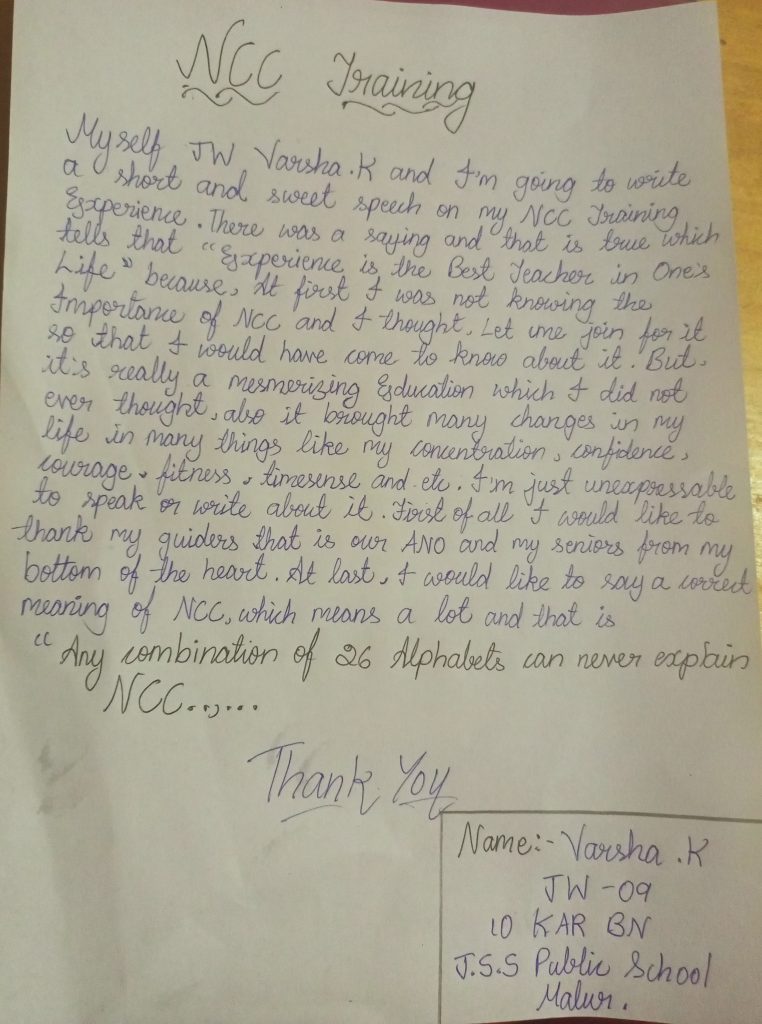 NCC Training
Myself JW Varsha.K and I'm going to write
a short and sweet speech on my NCC Training
Experience. There was a saying and that is true which
tells that "Experience is the Best Teacher in One's
Life" because, At first I was not knowing the
Importance of NCC and I thought, Let me join for it
so that I would have come to know about it. But,
it's really a mesmerizing Education which I did not
ever thought, also it brought many changes in my
life in many things like my concentration, confidence,
courage, fitness, timesense and etc. I'm just unexpressable
to speak or write about it. First of all I would like to
thank my guiders that is our ANO and my seniors from my
bottom of the heart. At last, I would like to say a correct
meaning of NCC, which means a lot and that is
"Any combination of 26 Alphabets can never explain
NCC..,...
Thank You
Name:- Varsha.K
JW-09
10 KAR BN
J.S.S Public School
Malur.